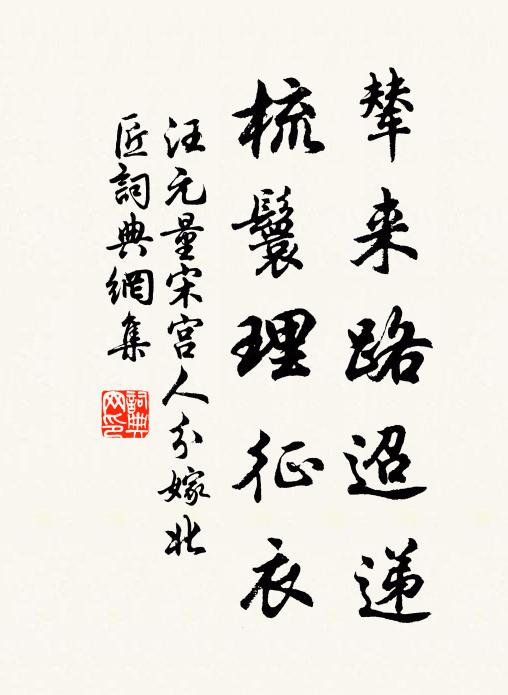 辇来路迢递
梳鬟理征衣
汪元量宋宫人分嫁北
匠詞典網集
詞典網印